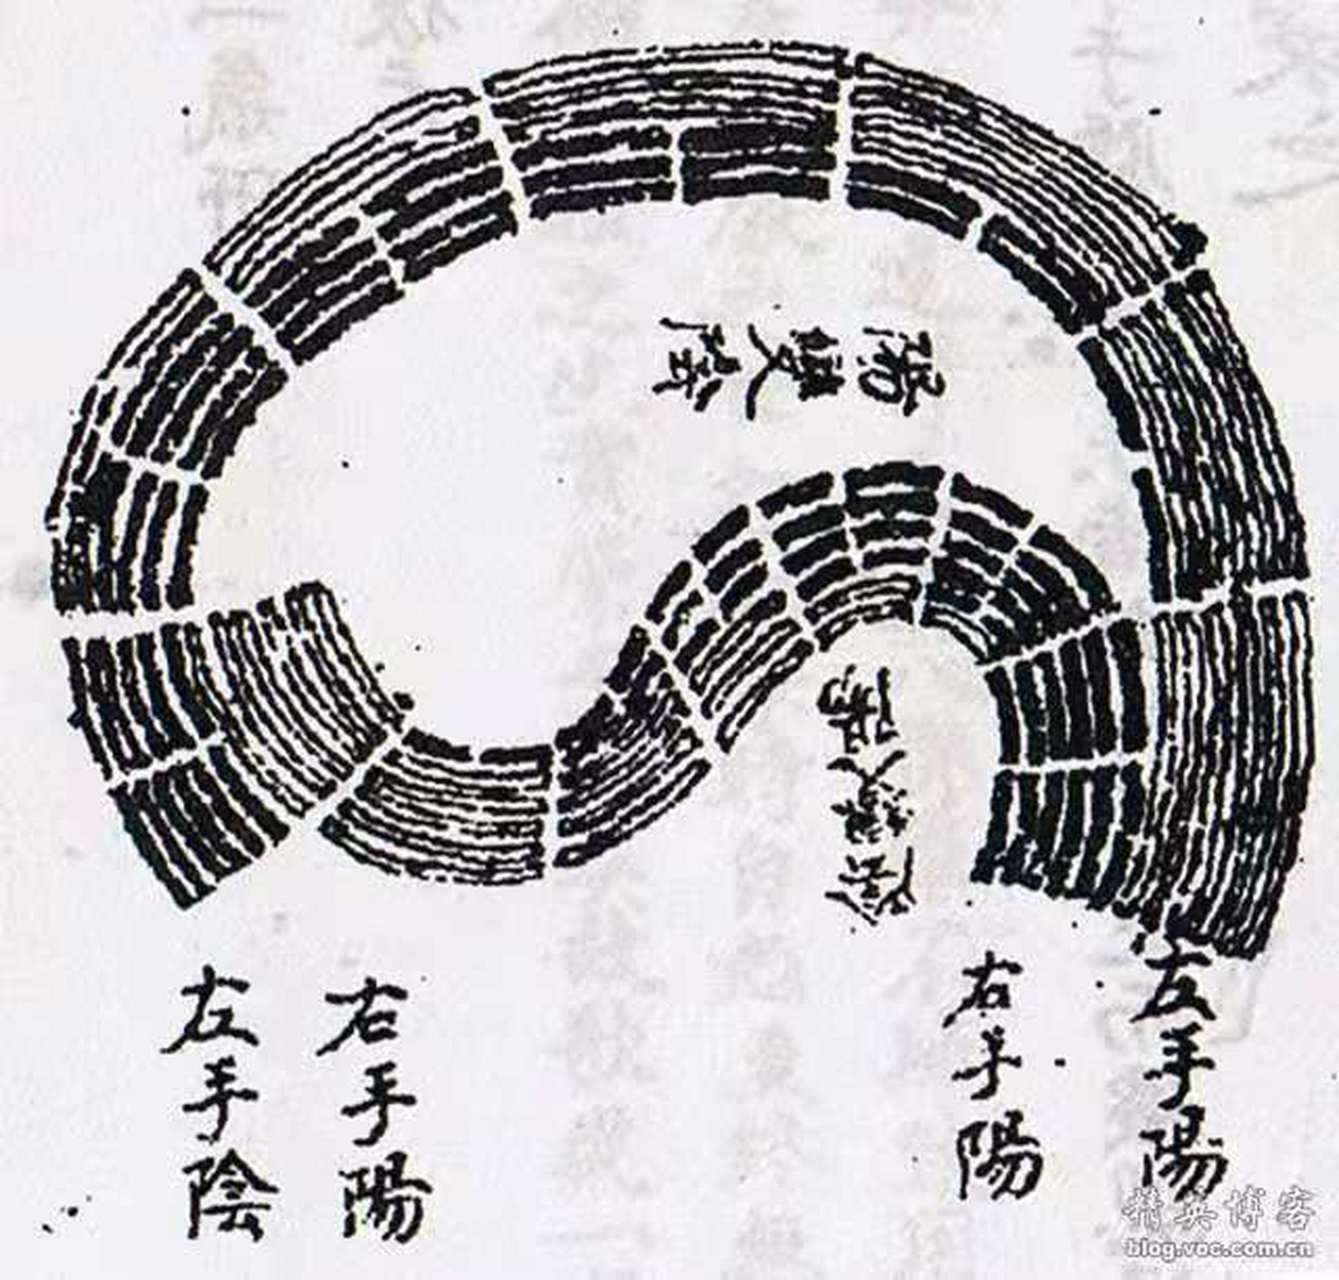 陽變陰
左手陽
右手陽
右手陽
左手陰
精英博客
blog.voc.com.cn